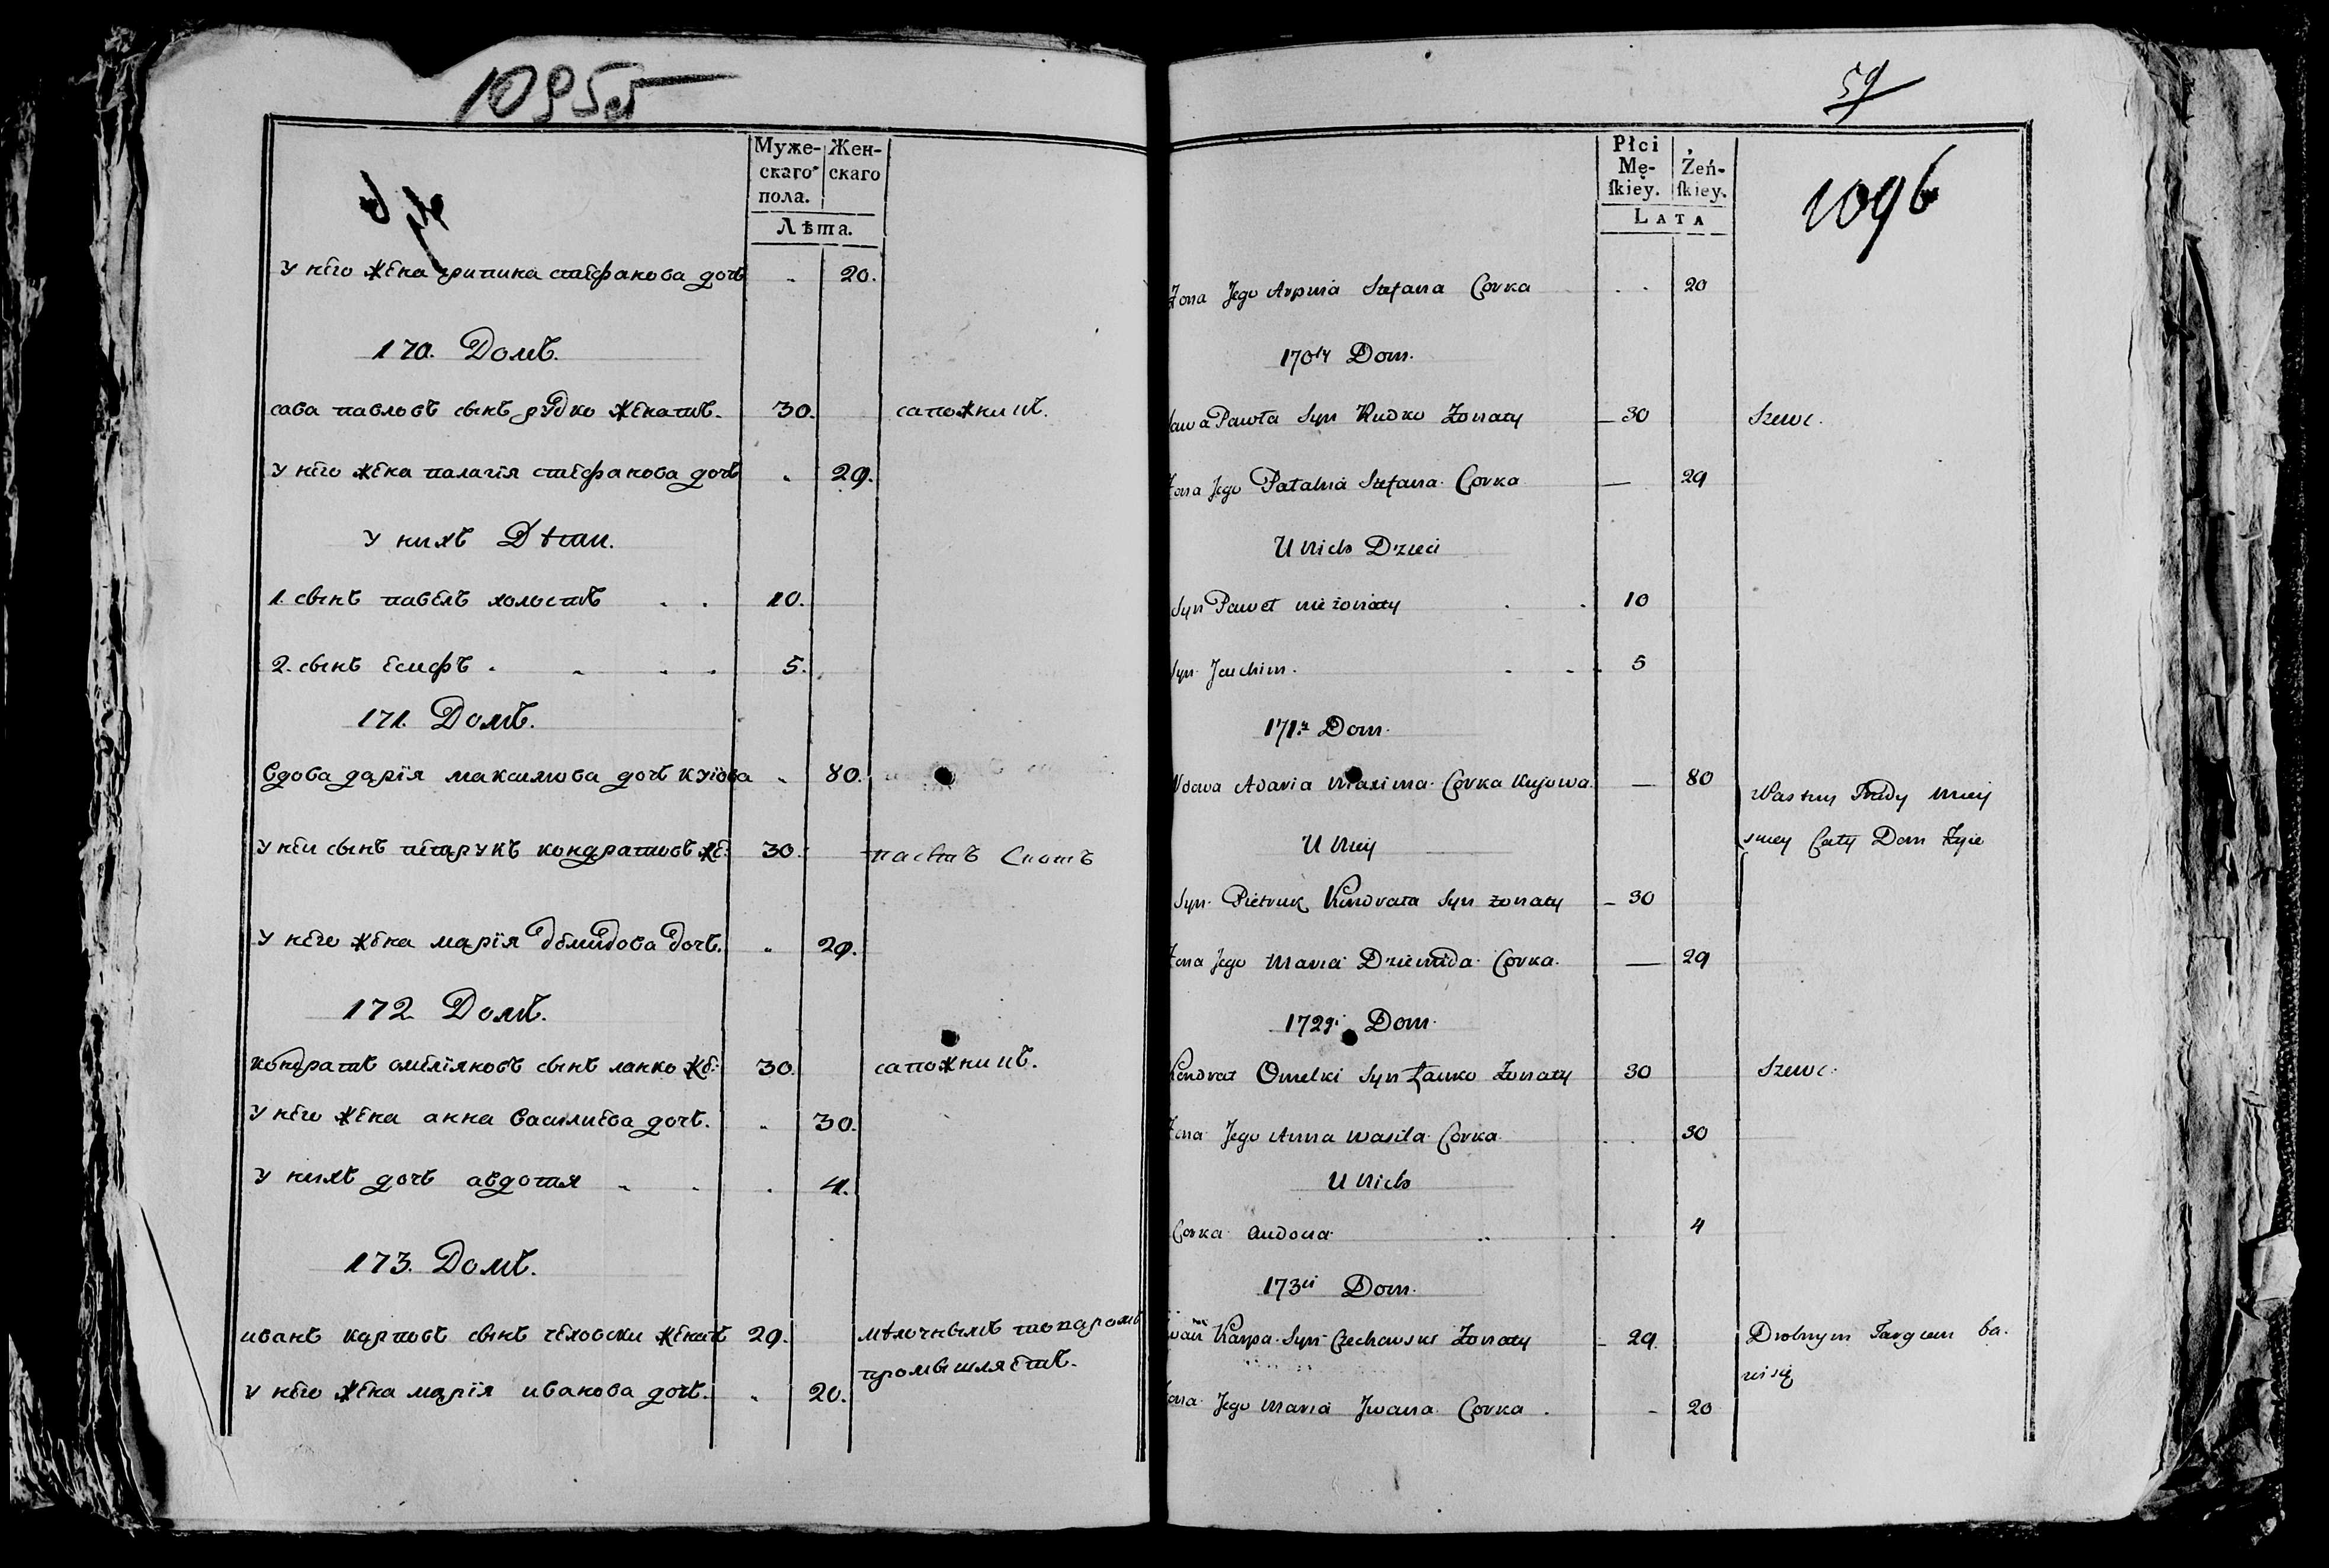 1095
Муже-
скаго
пола.
Жен-
скаго
Лѣта.
у него жена грипина стефанова дочь 20.
170. Домъ.
сава павловъ сынъ рудко женатъ. 30. сапожникъ.
у него жена палагїя стефанова дочь 29.
у нихъ Дѣти.
1. сынъ павелъ холостъ 10.
2. сынъ есифъ 5.
171. Домъ.
вдова дарїя максимова дочь куїова 80.
у неи сынъ петрукъ кондратовъ же: 30. пасетъ скотъ
у него жена марїя демидова дочь. 29.
172 Домъ.
кондратъ омелїяновъ сынъ ланко же: 30. сапожникъ.
у него жена анна василиева дочь. 30.
у нихъ дочь авдотия 4.
173. Домъ.
иванъ карповъ сынъ чеховски женатъ 29. мѣлочнымъ товаромъ
промышляетъ.
у него жена марїя иванова дочь. 20.
59
Płci
Mę-
ſkiey.
Żeń-
ſkiey.
LATA
1096
Żona Jego Arpina Stefana Corka 20
170ty Dom.
Sawa Pawła Syn Rudko Żonaty 30 Szewc.
Żona Jego Pałahia Stefana Corka 29
U Nich Dzieci
Syn Paweł nie żonaty 10
Syn 5
171. Dom.
Wdowa Adaria Maxima Corka Kujowa 80
U Niey
sney Cały Dom Żyie
Syn Pietruk Kondrata Syn żonaty 30
Żona Jego Maria Dziemida Corka 29
172gi Dom.
Kondrat Omelki Syn Łanko Żonaty 30 Szewc.
Żona Jego Anna Wasila Corka 30
U Nich
Corka Audocia 4
173ci Dom.
Iwan Karpa Syn Czechowski Żonaty 29 Drobnym Targiem ba-
wi się
Żona Jego Maria Jwana Corka 20